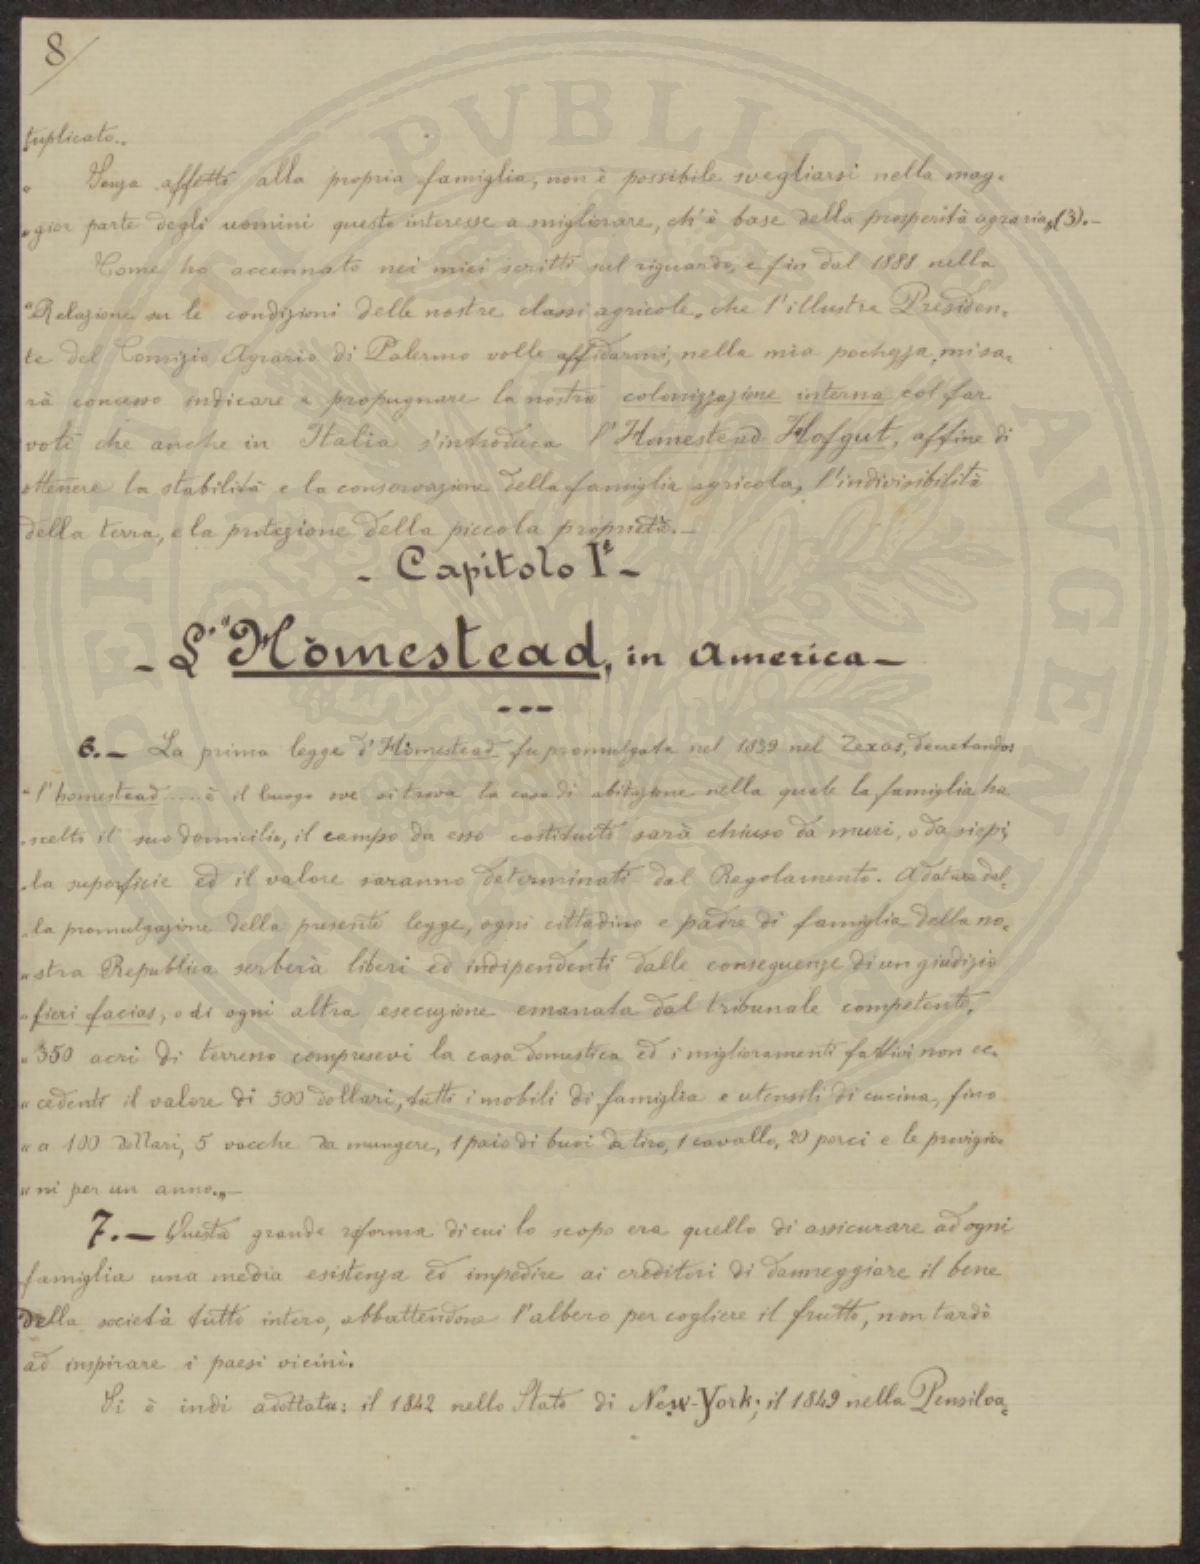 8
tuplicato.„
„ Senza affetto alla propria famiglia, non è possibile svegliarsi nella mag=
„gior parte degli uomini questo interesse a migliorare, ch'è base della prosperità agraria„(3).—
Come ho accennato nei miei scritti sul riguardo, e fin dal 1888 nella
"Relazione su le condizioni delle nostre classi agricole„ che l'illustre Presiden=
te del Comizio Agrario di Palermo volle affidarmi, nella mia pochezza, mi sa=
rà concesso indicare e propugnare la nostra colonizzazione interna col far
voti che anche in Italia s'introduca l'Homestead Hofgut, affine di
ottenere la stabilità e la conservazione della famiglia agricola, l'indivisibilità
della terra, e la protezione della piccola proprietà.—
- Capitolo Iº -
- L'"Homestead„ in America -
---
6.— La prima legge d'Homestead fu promulgata nel 1839 nel Texas, decretando:
"l'homestead..... è il luogo ove si trova la casa di abitazione nella quale la famiglia ha
„scelto il suo domicilio, il campo da esso costituito sarà chiuso da muri, o da siepi;
„la superficie ed il valore saranno determinati dal Regolamento. A datare dal=
„la promulgazione della presente legge, ogni cittadino e padre di famiglia della no=
„stra Republica serberà liberi ed indipendenti dalle conseguenze di un giudizio
„fieri facias, o di ogni altra esecuzione emanata dal tribunale competente,
„350 acri di terreno compresevi la casa domestica ed i miglioramenti fattivi non ec=
„cedenti il valore di 500 dollari, tutti i mobili di famiglia e utensili di cucina, fino
„a 100 dollari, 5 vacche da mungere, 1 paio di buoi da tiro, 1 cavallo, 20 porci e le provigio=
„ni per un anno.„—
7.— Questa grande riforma di cui lo scopo era quello di assicurare ad ogni
famiglia una media esistenza ed impedire ai creditori di danneggiare il bene
della società tutto intero, abbattendone l'albero per cogliere il frutto, non tardò
ad inspirare i paesi vicini.
Si è indi adottata: il 1842 nello Stato di New-York; il 1849 nella Pensilva=